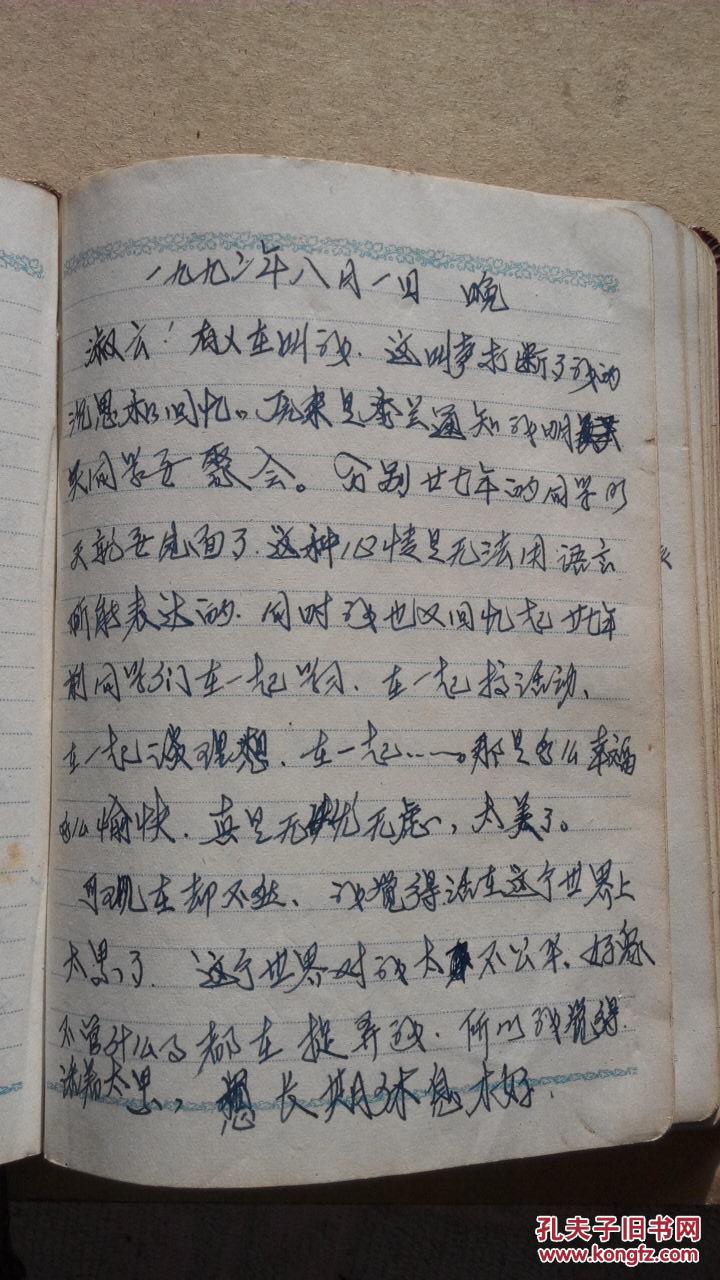 一九九三年八月一日 晚
淑云!有人在叫我.这叫声打断了我的
沉思和回忆。原来是李兰通知我明
天同学要聚会。分别廿七年的同学明
天就要见面了.这种心情是无法用语言
所能表达的.同时我也又回忆起廿七年
前同学们在一起学习、在一起搞活动、
在一起谈理想.在一起……。那是多么幸福
多么愉快.真是无忧无虑,太美了。
可现在却不然、我觉得活在这个世界上
太累了.这个世界对我太不公平、好象
不管什么事都在捉弄我.所以我觉得.
活着太累,想长期休息才好.
孔夫子旧书网
www.kongfz.com